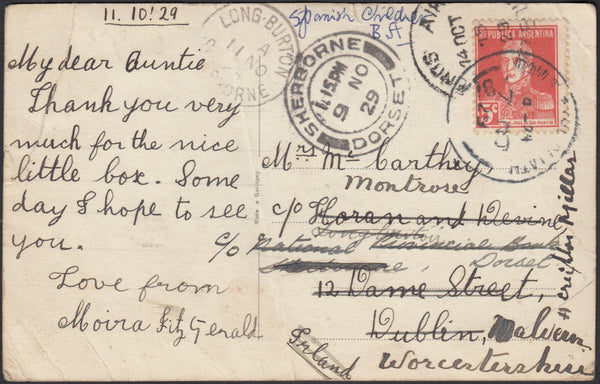 11. 10! 29
Spanish Children
B.A
LONG-BURTON
SHERBORNE
11 NO
SHERBORNE
11.15PM
9 NO
29
DORSET
14 OCT
REPUBLICA ARGENTINA
5c
My dear Auntie
Thank you very
much for the nice
little box. Some
day I hope to see
you.
Love from
Moira Fitz Gerald.
Mrs Mc Carthy
Montrose
c/o Horan and Devine
Long Burton
c/o National Provincial Bank
Sherborne, Dorset
12 Dame Street,
Dublin,
Ireland
Malvern
Worcestershire